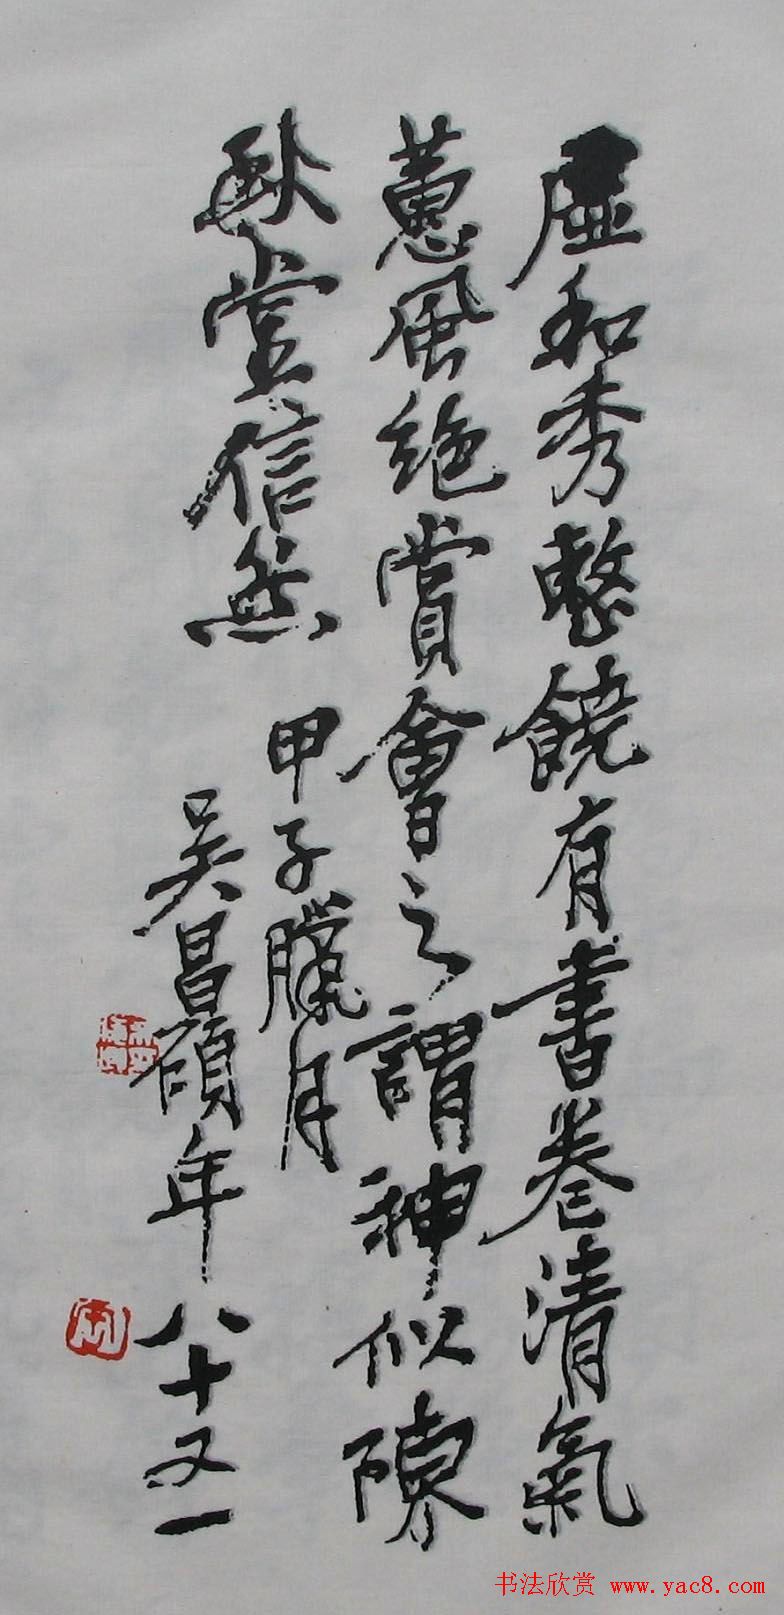 虛和秀整饒有書卷清氣
蕙風絕賞會之謂神似陳
秋堂信然
甲子臘月
吳昌碩年八十又一
书法欣赏 www.yac8.com